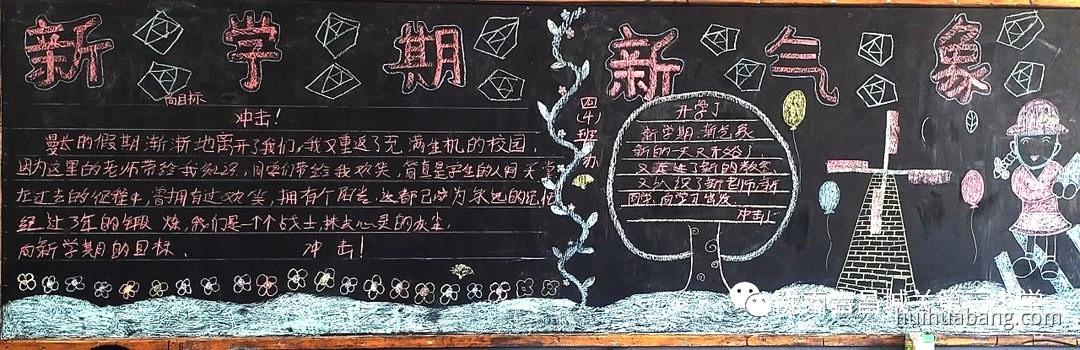 新学期 新气象
向目标
冲击!
漫长的假期渐渐地离开了我们,我又重返了充满生机的校园,
因为这里的老师带给我知识,同学们带给我欢笑,简直是学生的人间天堂
在过去的征程中,曾拥有过欢笑,拥有个
经过了年的锻炼,我们是一个个战士,
向新学期的目标、 冲击!
四(4)班办
开学了
新学期,新气象
新的一天又开始了
又迎来了新的
又认识了新老师,新
同学,向学习
冲击
huihuabang.com